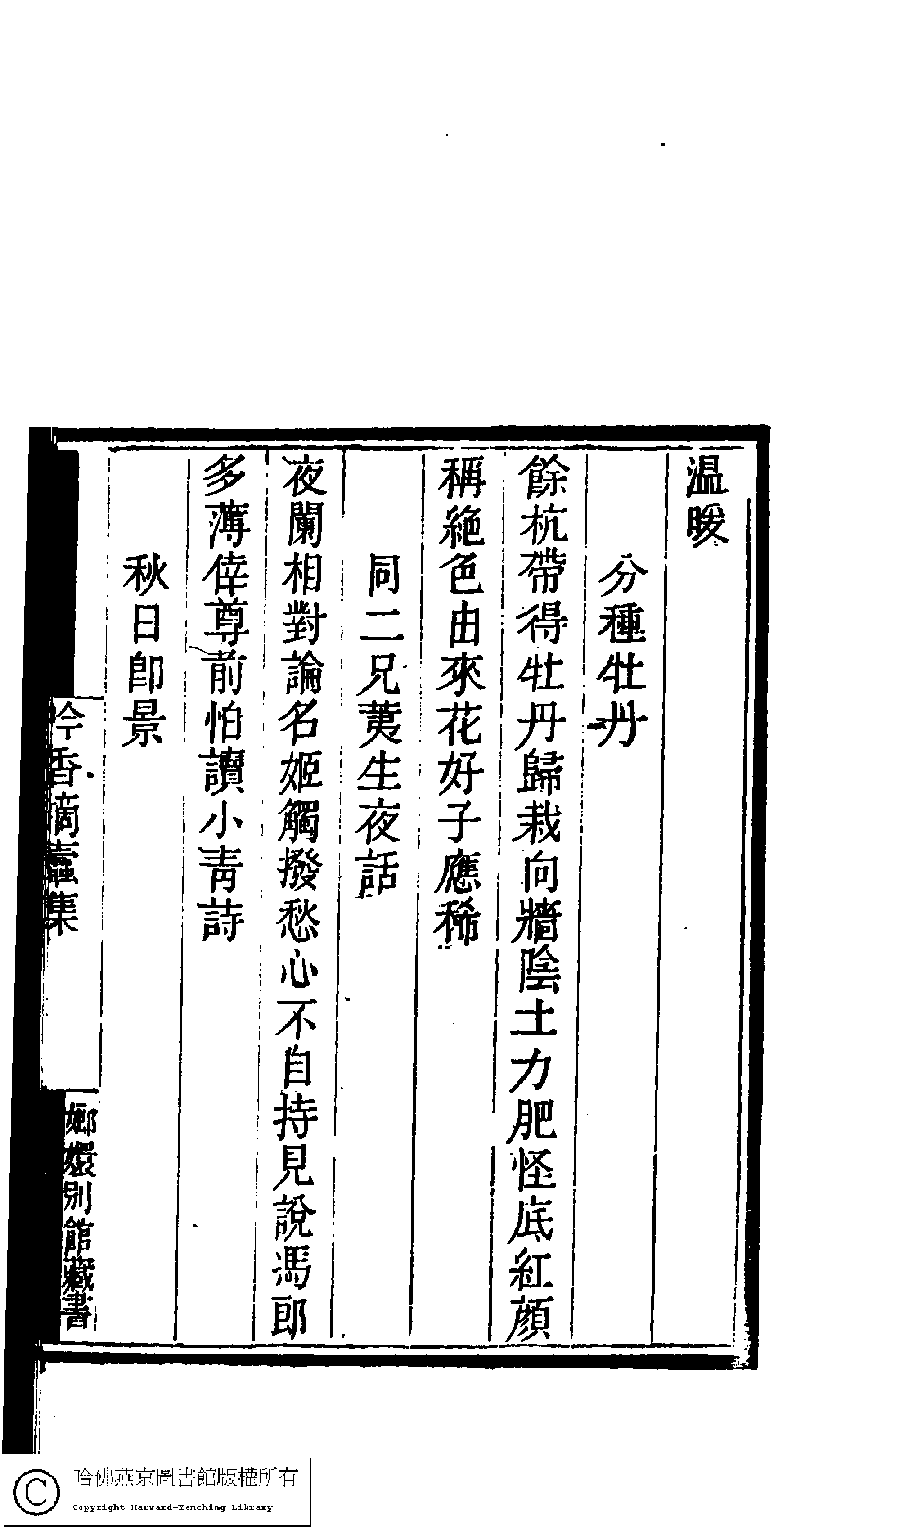 温暖
分種牡丹
餘杭帶得牡丹歸栽向牆陰土力肥怪底紅顔
稱絶色由來花好子應稀
同二兄荑生夜話
夜闌相對論名姬觸撥愁心不自持見說馮郎
多薄倖尊前怕讀小青詩
秋日即景
吟香摘蠧集
嫏嬛別館藏書
哈佛燕京圖書館版權所有
Copyright Harvard-Yenching Library